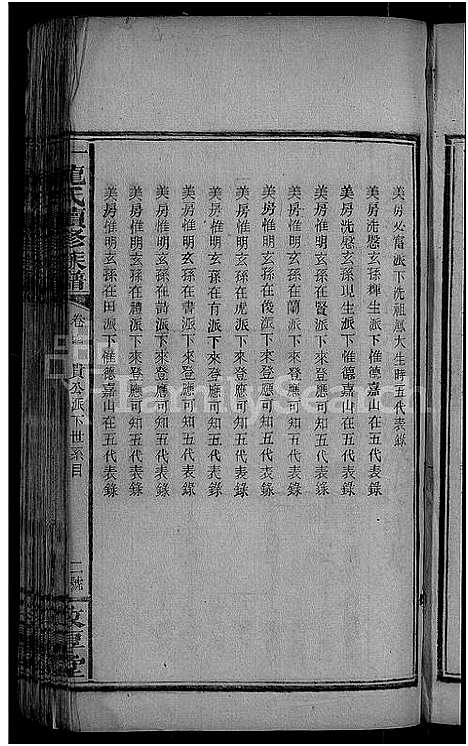 美房必甯派下洗祖慰大生時五代表錄
美房洗慇玄孫輝生派下惟德嘉山在五代表錄
美房洗慇玄孫現生派下惟德嘉山在五代表錄
美房惟明玄孫在賢派下來登應可知五代表錄
美房惟明玄孫在蘭派下來登應可知五代表錄
美房惟明玄孫在俊派下來登應可知五代表錄
美房惟明玄孫在虎派下來登應可知五代表錄
美房惟明玄孫在有派下來登應可知五代表錄
美房惟明玄孫在書派下來登應可知五代表錄
美房惟明玄孫在詩派下來登應可知五代表錄
美房惟明玄孫在禮派下來登應可知五代表錄
美房惟明玄孫在田派下惟德嘉山在五代表錄
氏續修族譜 卷 貴公派下世系目 二 敦 堂
FamilySearch